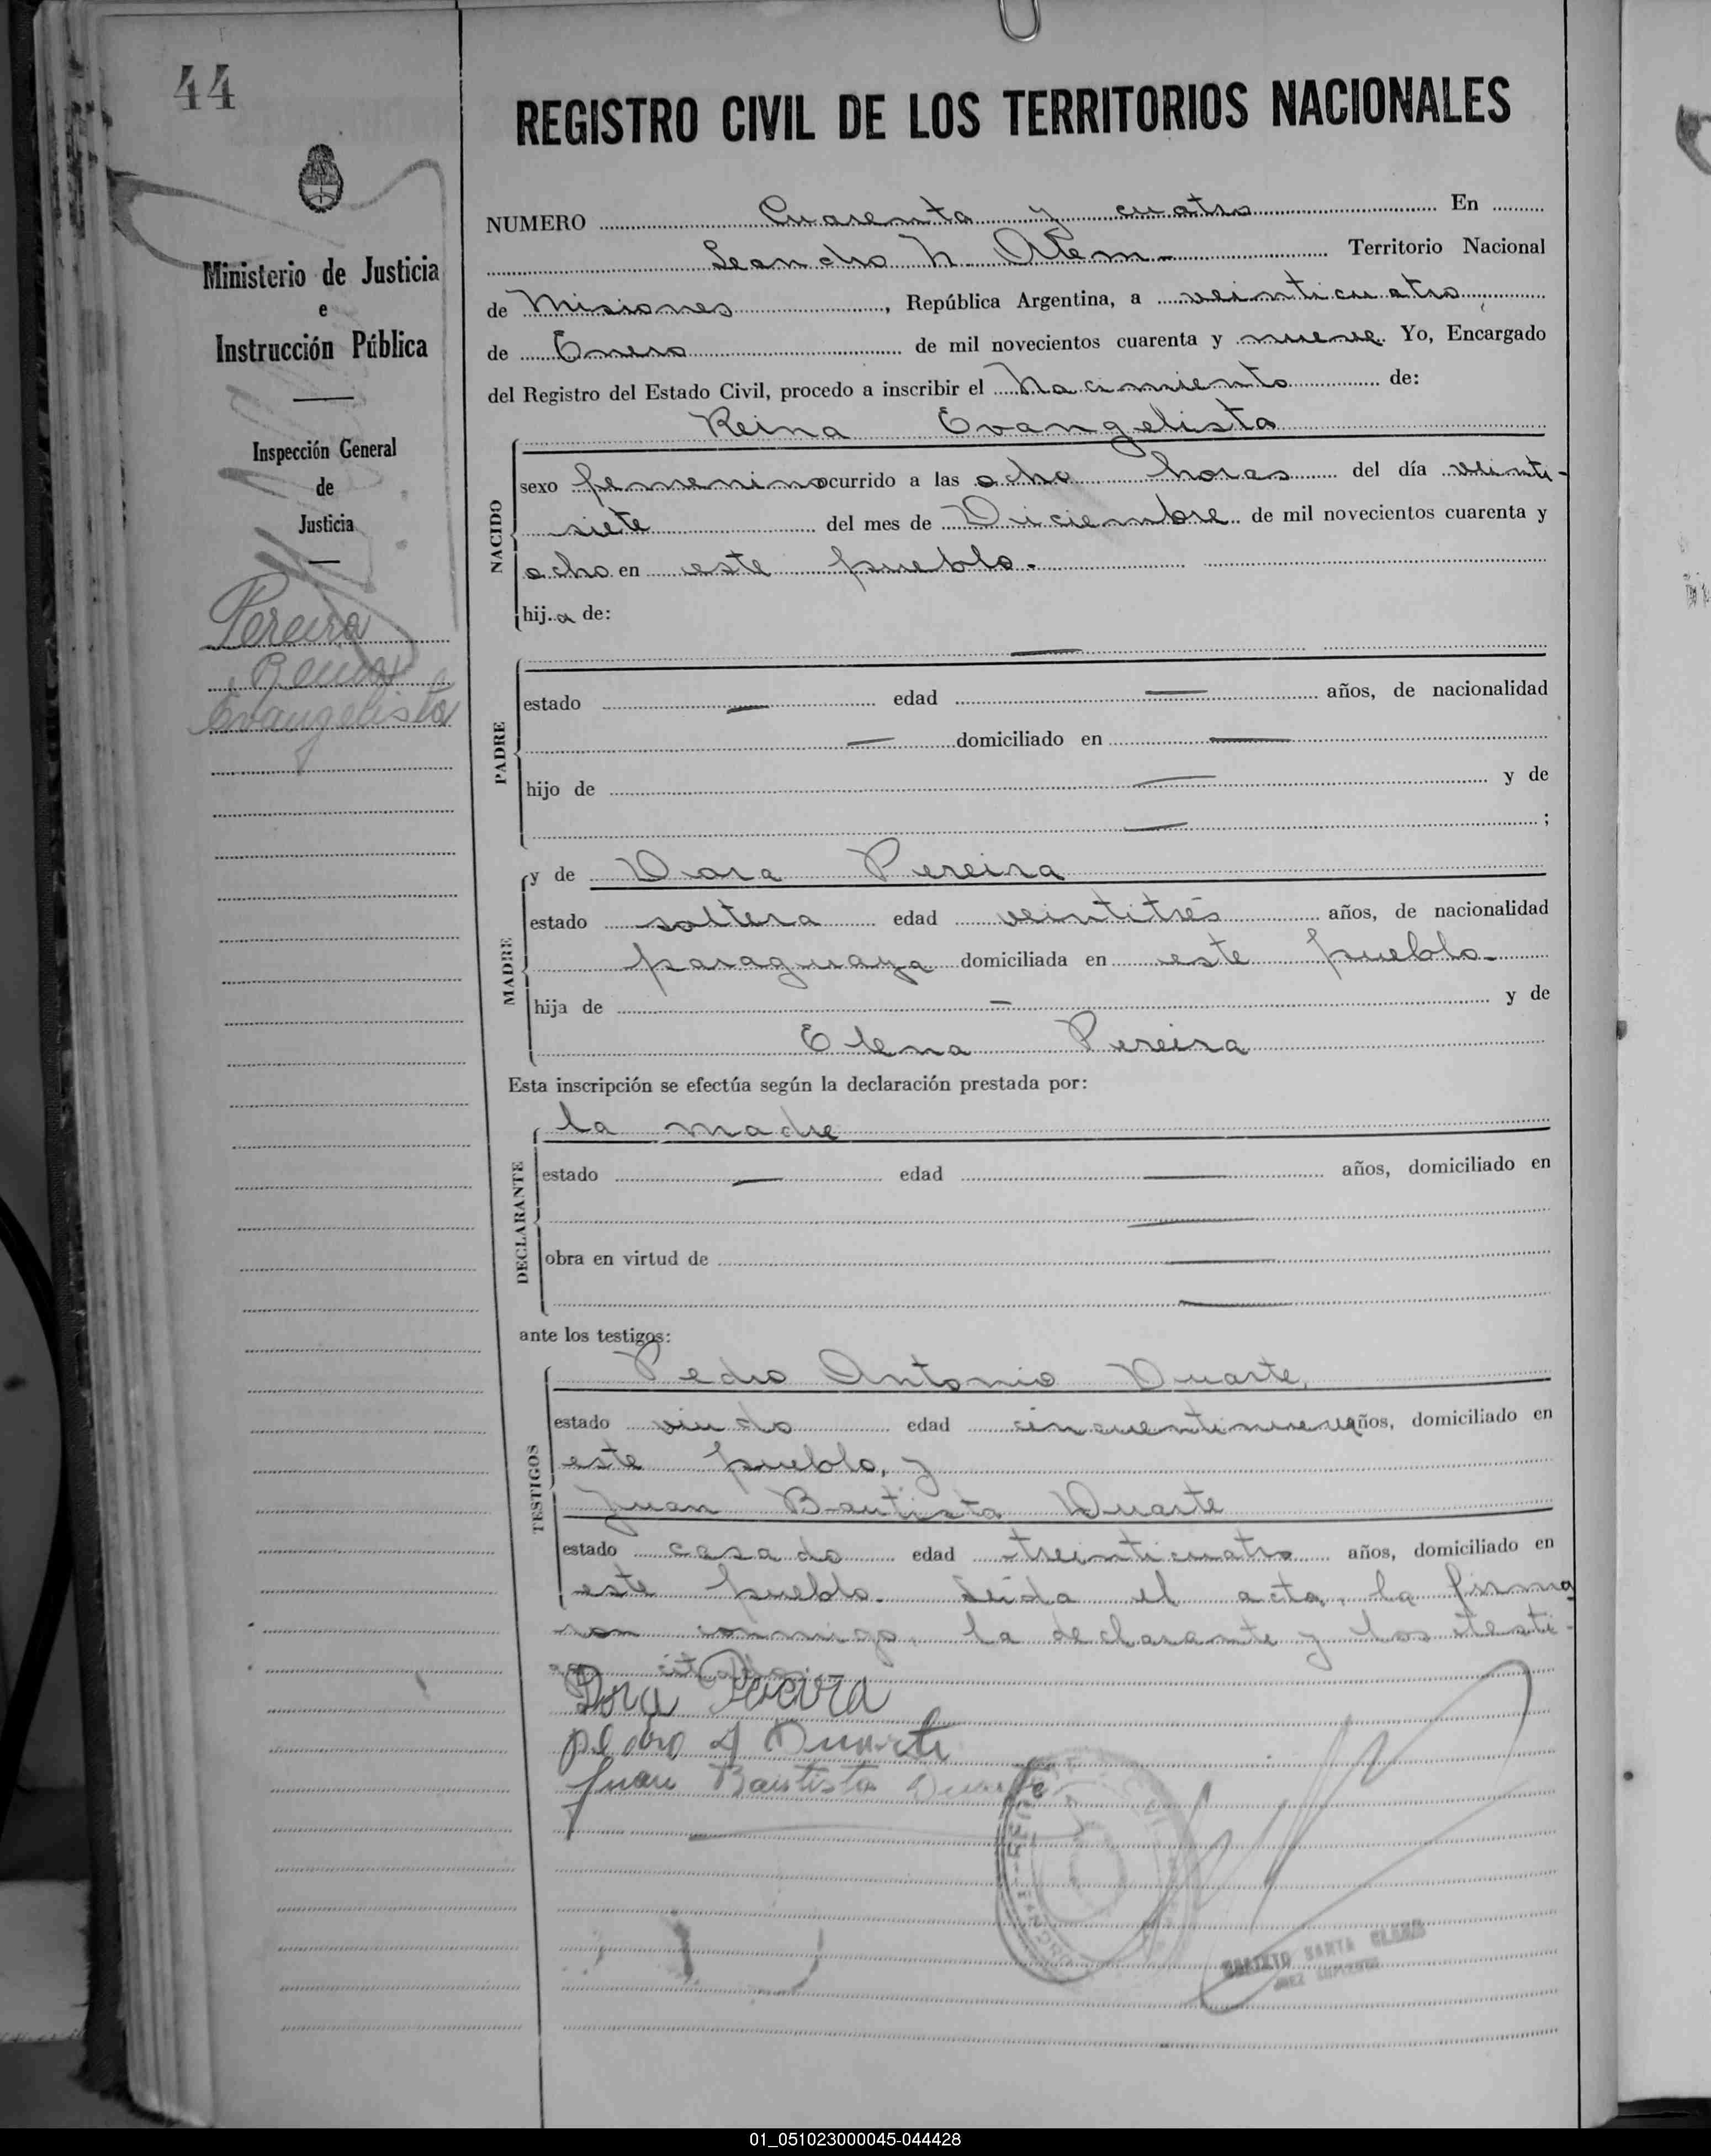 44
REGISTRO CIVIL DE LOS TERRITORIOS NACIONALES
Ministerio de Justicia
e
Instrucción Pública
Inspección General
de
Justicia
Pereira
Reina
Evangelista
NUMERO Cuarenta y cuatro En
Leandro N. Alem Territorio Nacional
de Misiones, República Argentina, a veinticuatro
de Enero de mil novecientos cuarenta y nueve. Yo, Encargado
del Registro del Estado Civil, procedo a inscribir el Nacimiento de:
Reina Evangelista
NACIDO
sexo femenino ocurrido a las ocho horas del día veinti-
siete del mes de Diciembre de mil novecientos cuarenta y
ocho en este pueblo.
hija de:
PADRE
estado — edad — años, de nacionalidad
— domiciliado en —
hijo de — y de
— ;
MADRE
y de Dora Pereira
estado soltera edad veintitrés años, de nacionalidad
paraguaya domiciliada en este pueblo.
hija de — y de
Elena Pereira
Esta inscripción se efectúa según la declaración prestada por:
la madre
DECLARANTE
estado — edad — años, domiciliado en
—
obra en virtud de —
—
ante los testigos:
TESTIGOS
Pedro Antonio Duarte,
estado viudo edad cincuentinueve años, domiciliado en
este pueblo, y
Juan Bautista Duarte
estado casado edad treinticuatro años, domiciliado en
este pueblo. Leida el acta, la firma
ron conmigo, la declarante y los testi-
gos citados.
Dora Pereira
pedro A Duarte
Juan Bautista Duarte
SANTA
01_051023000045-044428